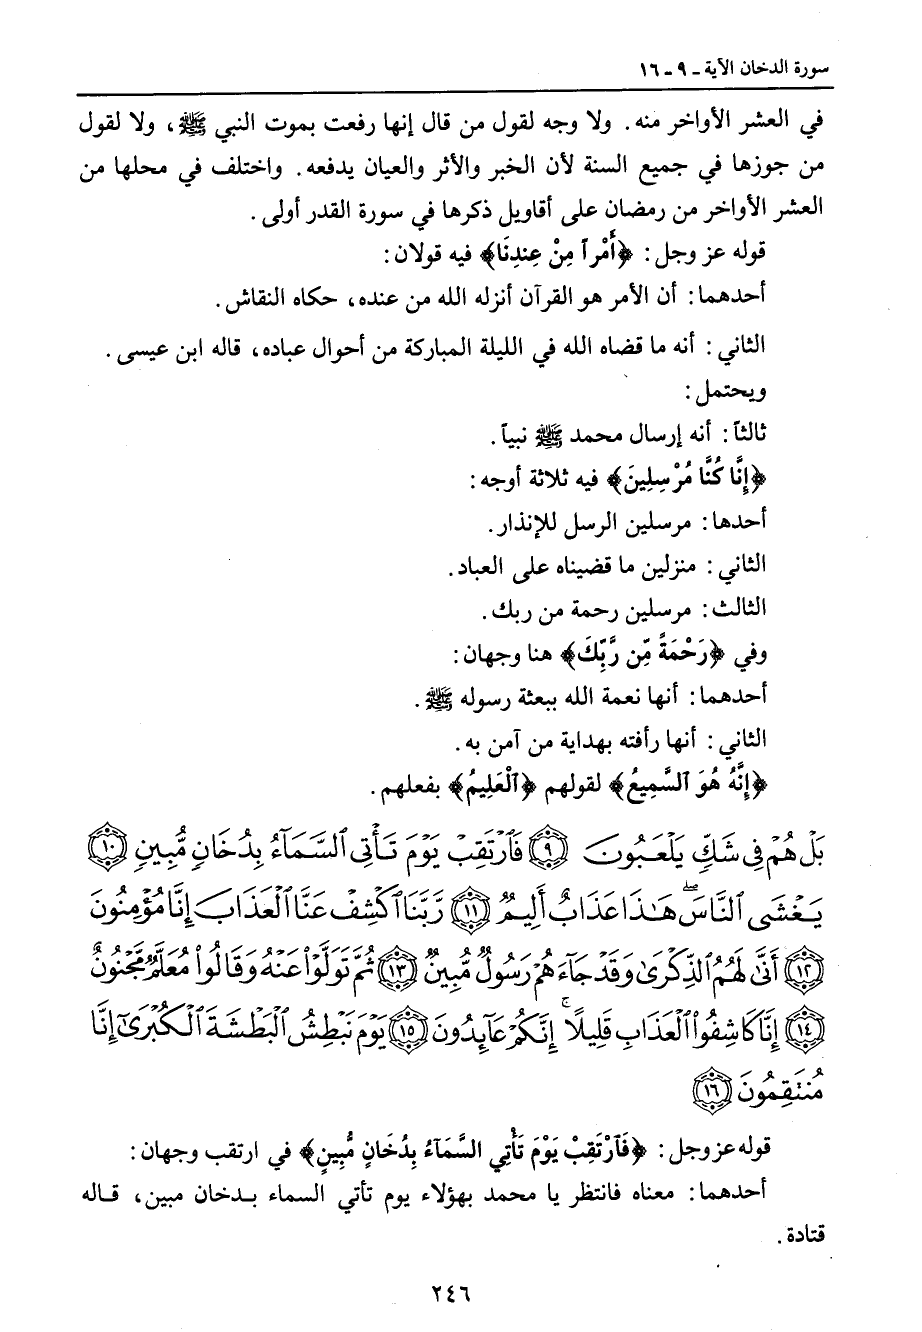 سورة الدخان الآية ـ ٩ ـ ١٦
في العشر الأواخر منه. ولا وجه لقول من قال إنها رفعت بموت النبي ﷺ، ولا لقول
من جوزها في جميع السنة لأن الخبر والأثر والعيان يدفعه. واختلف في محلها من
العشر الأواخر من رمضان على أقاويل ذكرها في سورة القدر أولى.
قوله عز وجل: ﴿أَمْراً مِنْ عِندِنَا﴾ فيه قولان:
أحدهما: أن الأمر هو القرآن أنزله الله من عنده، حكاه النقاش.
الثاني: أنه ما قضاه الله في الليلة المباركة من أحوال عباده، قاله ابن عيسى.
ويحتمل:
ثالثاً: أنه إرسال محمد ﷺ نبياً.
﴿إِنَّا كُنَّا مُرْسِلِينَ﴾ فيه ثلاثة أوجه:
أحدها: مرسلين الرسل للإنذار.
الثاني: منزلين ما قضيناه على العباد.
الثالث: مرسلين رحمة من ربك.
وفي ﴿رَحْمَةً مِّن رَّبِّكَ﴾ هنا وجهان:
أحدهما: أنها نعمة الله ببعثة رسوله ﷺ.
الثاني: أنها رأفته بهداية من آمن به.
﴿إِنَّهُ هُوَ السَّمِيعُ﴾ لقولهم ﴿الْعَلِيمُ﴾ بفعلهم.
بَلْ هُمْ فِي شَكٍّ يَلْعَبُونَ ﴿٩﴾ فَٱرْتَقِبْ يَوْمَ تَأْتِي ٱلسَّمَآءُ بِدُخَانٍ مُّبِينٍ ﴿١٠﴾
يَغْشَى ٱلنَّاسَ ۖ هَٰذَا عَذَابٌ أَلِيمٌ ﴿١١﴾ رَّبَّنَا ٱكْشِفْ عَنَّا ٱلْعَذَابَ إِنَّا مُؤْمِنُونَ
﴿١٢﴾ أَنَّىٰ لَهُمُ ٱلذِّكْرَىٰ وَقَدْ جَآءَهُمْ رَسُولٌ مُّبِينٌ ﴿١٣﴾ ثُمَّ تَوَلَّوْا۟ عَنْهُ وَقَالُوا۟ مُعَلَّمٌ مَّجْنُونٌ
﴿١٤﴾ إِنَّا كَاشِفُوا۟ ٱلْعَذَابِ قَلِيلًا ۚ إِنَّكُمْ عَآئِدُونَ ﴿١٥﴾ يَوْمَ نَبْطِشُ ٱلْبَطْشَةَ ٱلْكُبْرَىٰٓ إِنَّا
مُنتَقِمُونَ ﴿١٦﴾
قوله عز وجل: ﴿فَٱرْتَقِبْ يَوْمَ تَأْتِي السَّمَآءُ بِدُخَانٍ مُّبِينٍ﴾ في ارتقب وجهان:
أحدهما: معناه فانتظر يا محمد بهؤلاء يوم تأتي السماء بدخان مبين، قاله
قتادة.
٢٤٦